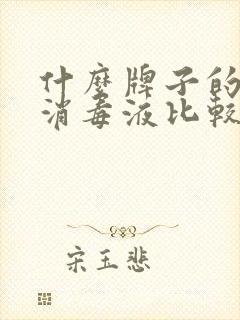 什麼牌子的
消毒液比較
宋玉悲